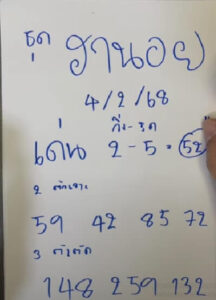 ชุด ฮานอย
4/2/68
กิ่ง-รูด
เด่น 2-5 · 52
2 ตัวเจาะ
59 42 85 72
3 ตัวตัด
148 259 132